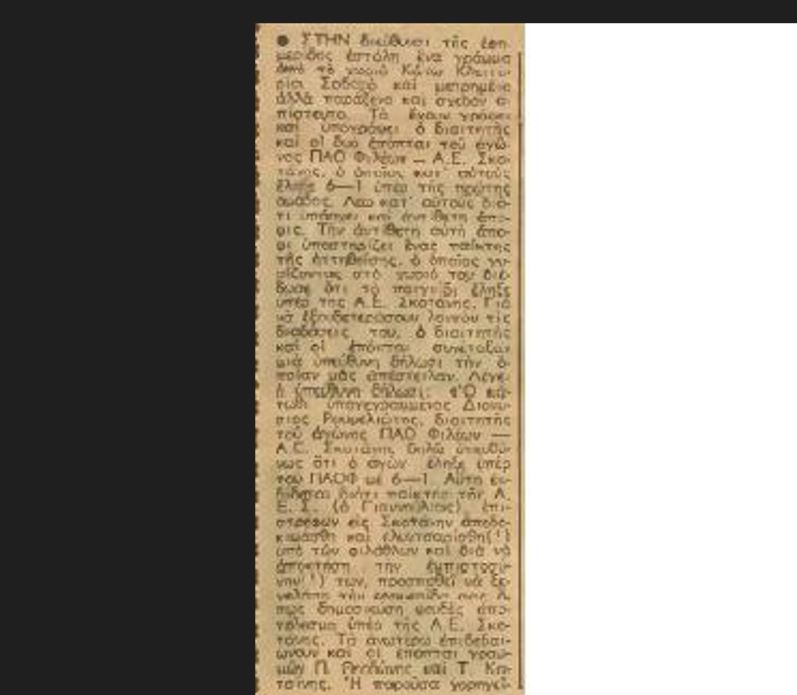 ● ΣΤΗΝ διεύθυνσι τῆς ἐφη-
μερίδος ἐστάλη ἕνα γράμμα
ἀπὸ τὸ χωριὸ Κάτω Κλειτο-
ρία. Σοβαρὸ καὶ μετρημένο
ἀλλὰ παράξενο καὶ σχεδὸν ἀ-
πίστευτο. Τὸ ἔχουν γράψει
καὶ ὑπογράψει ὁ διαιτητὴς
καὶ οἱ δυὸ ἐπόπται τοῦ ἀγῶ-
νος ΠΑΟ Φιλίων — Α.Ε. Σκο-
τάνης, ὁ ὁποῖος κατ' αὐτοὺς
ἔληξε 6—1 ὑπὲρ τῆς πρώτης
ὁμάδος. Λέω κατ' αὐτοὺς διό-
τι ὑπάρχει καὶ ἀντίθετη ἄπο-
ψις. Τὴν ἀντίθετη αὐτὴ ἄπο-
ψι ὑποστηρίζει ἕνας παίκτης
τῆς ἡττηθείσης, ὁ ὁποῖος γυ-
ρίζοντας στὸ χωριό του διέ-
δωσε ὅτι τὸ παιγνίδι ἔληξε
ὑπὲρ τῆς Α.Ε. Σκοτάνης. Γιὰ
νὰ ἐξουδετερώσουν λοιπὸν τὶς
διαδόσεις του, ὁ διαιτητὴς
καὶ οἱ ἐπόπται συνέταξαν
μιὰ ὑπεύθυνη δήλωσι τὴν ὁ-
ποίαν μᾶς ἀπέστειλαν. Λέγει
ἡ ὑπεύθυνη δήλωσι: «Ὁ κά-
τωθι ὑπογεγραμμένος Διονύ-
σιος Ρουμελιώτης, διαιτητὴς
τοῦ ἀγῶνος ΠΑΟ Φιλίων —
Α.Ε. Σκοτάνης δηλῶ ὑπευθύ-
νως ὅτι ὁ ἀγὼν ἔληξε ὑπὲρ
τοῦ ΠΑΟΦ μὲ 6—1. Αὕτη ἐκ-
δίδεται διότι παίκτης τῆς Α.
Ε.Σ. (ὁ Γιαννούλιας) ἐπι-
στρέφων εἰς Σκοτάνην ἀπεδο-
κιμάσθη καὶ (!)
ὑπὸ τῶν φιλάθλων καὶ διὰ νὰ
ἀποκτήση τὴν ἐμπιστοσύ-
νην(!) των, προσπαθεῖ νὰ ξε-
γελάση τὴν ἐφημερίδα σας ὅ-
πως δημοσιεύση ψευδὲς ἀπο-
τέλεσμα ὑπὲρ τῆς Α.Ε. Σκο-
τάνης. Τὰ ἀνωτέρω ἐπιβεβαι-
ώνουν καὶ οἱ ἐπόπται γραμ-
μῶν Π. καὶ Τ.
Ἡ παροῦσα χορηγεῖ-